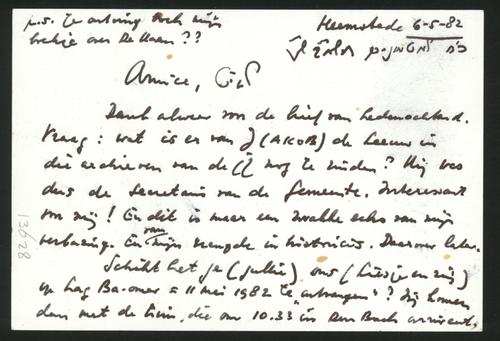 p.s. Je ontving toch mijn
boekje over De Haan??
Heemstede 6-5-82
Amice,
Dank alweer voor de brief van hedenochtend.
Vraag: wat is er van J(AKOB) de Leeuw in
die archieven van de nog te vinden? Hij was
dus de secretaris van de Gemeente. Interessant
voor mij! En dit is maar een zwakke echo van mijn
verbazing. En van mijn vreugde in historicis. Daarover later.
Schikt het je (jullie) ons (Liesje en mij)
op Lag Ba-omer = 11 mei 1982 te "ontvangen"? Wij komen
dan met de trein, die om 10.33 in Den Bosch arriveert.
13628